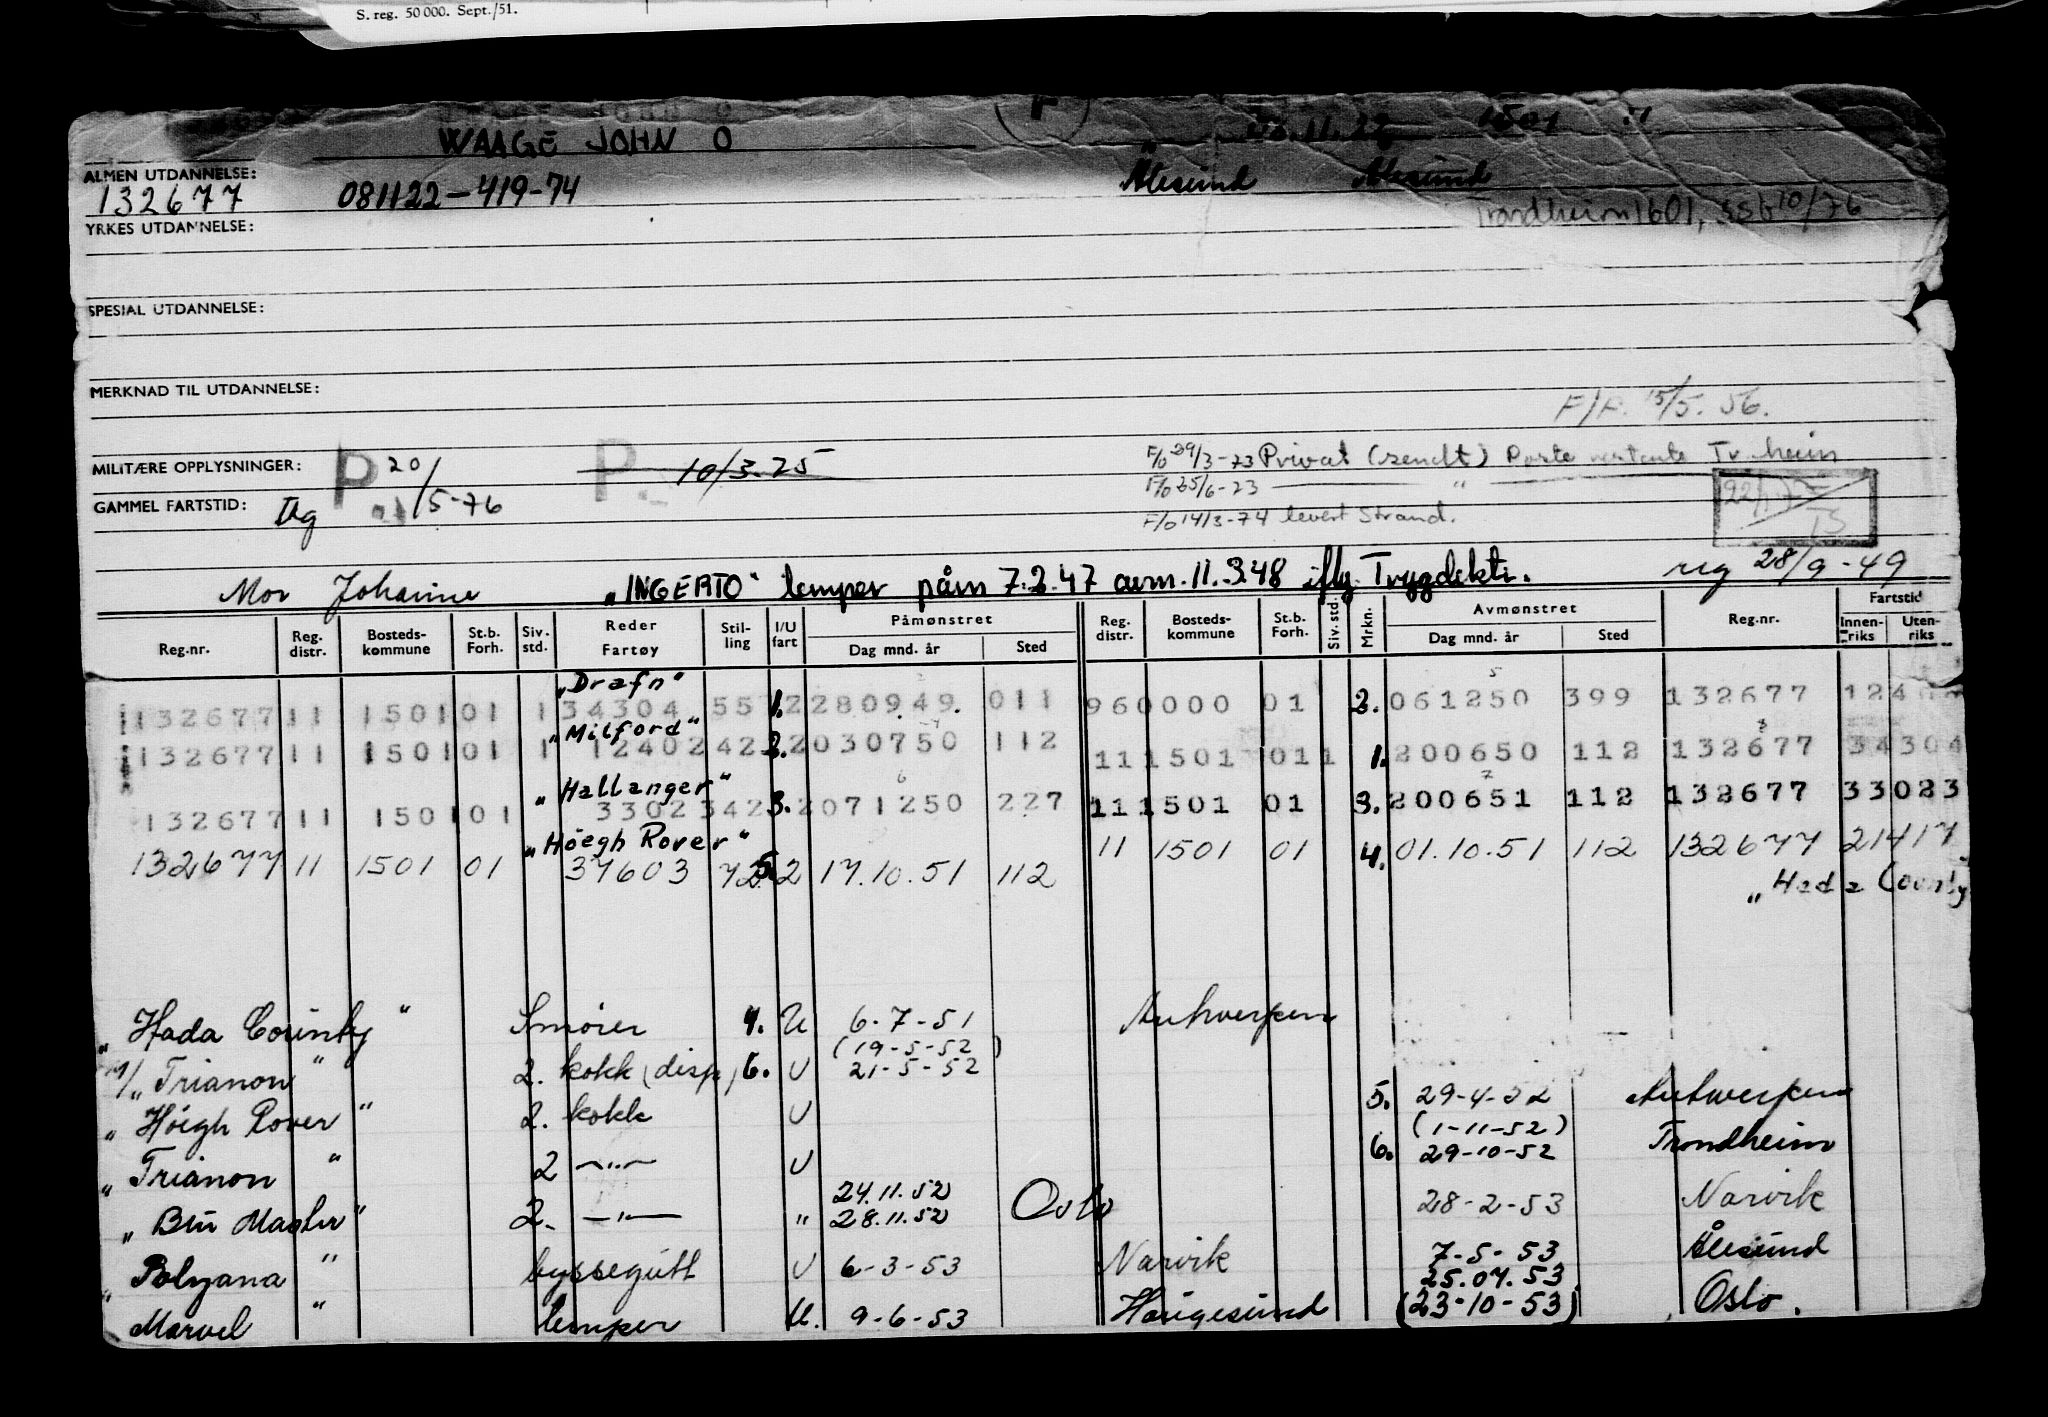 S. reg. 50 000. Sept./51.
WAAGE JOHN O
ALMEN UTDANNELSE:
132677 081122-419-74 Ålesund Ålesund
Trondheim 1601, SSb 10/76
YRKES UTDANNELSE:
SPESIAL UTDANNELSE:
MERKNAD TIL UTDANNELSE:
F/P. 15/5. 56.
MILITÆRE OPPLYSNINGER: P 20/5-76 P. 10/3.25 F/O 29/3-73 Privat (sendt) Poste restante Tr.heim
F/O 25/6-73 "
GAMMEL FARTSTID: F/O 14/3-74 levert Strand.
Mor Johanne "INGERTO" lemper påm 7.2.47 avm. 11.3.48 iflg. Trygdektr. reg 28/9-49
Reg.nr. Reg. distr. Bosteds-kommune St.b. Forh. Siv. std. Reder Fartøy Stil-ling I/U fart Påmønstret Dag mnd. år Sted Reg. distr. Bosteds-kommune St.b. Forh. Siv. std. Mrkn. Avmønstret Dag mnd. år Sted Reg.nr. Fartstid Innen-riks Uten-riks
"Drafn"
132677 11 1501 01 1 34304 55 1. 2 280949. 011 960000 01 2. 061250 399 132677
"Milford"
132677 11 1501 01 1 12402 42 2. 2 030750 112 11 1501 01 1 1. 200650 112 132677 34304
"Hallanger"
132677 11 1501 01 33023 42 3. 2 071250 227 11 1501 01 3. 200651 112 132677 33023
"Höegh Rover"
132677 11 1501 01 37603 72 5. 2 17.10.51 112 11 1501 01 4. 01.10.51 112 132677 21417
"Hada County
"Hada County" Smører 4. U 6-7-51 Antwerpen
(19-5-52)
M/"Trianon" 2. kokk (disp) 6. U 21-5-52
"Höegh Rover" 2. kokk U 5. 29-4-52 Antwerpen
(1-11-52)
"Trianon" 2 -"- U 6. 29-10-52 Trondheim
24.11.52
"Bru Master" 2. -"- " 28.11.52 Oslo 28-2-53 Narvik
"Polyana" byssegutt U 6-3-53 Narvik 7-5-53 Ålesund
25.07.53
Marvel" lemper U. 9-6-53 Haugesund (23-10-53) Oslo.